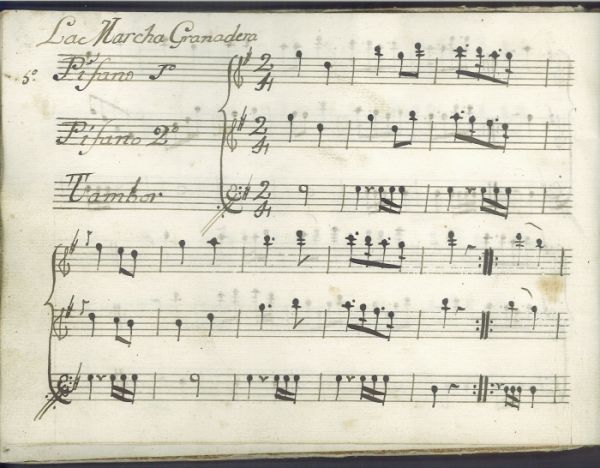 La Marcha Granadera
5º Pifano 1º
Pifano 2º
Tambor
2
4
2
4
2
4